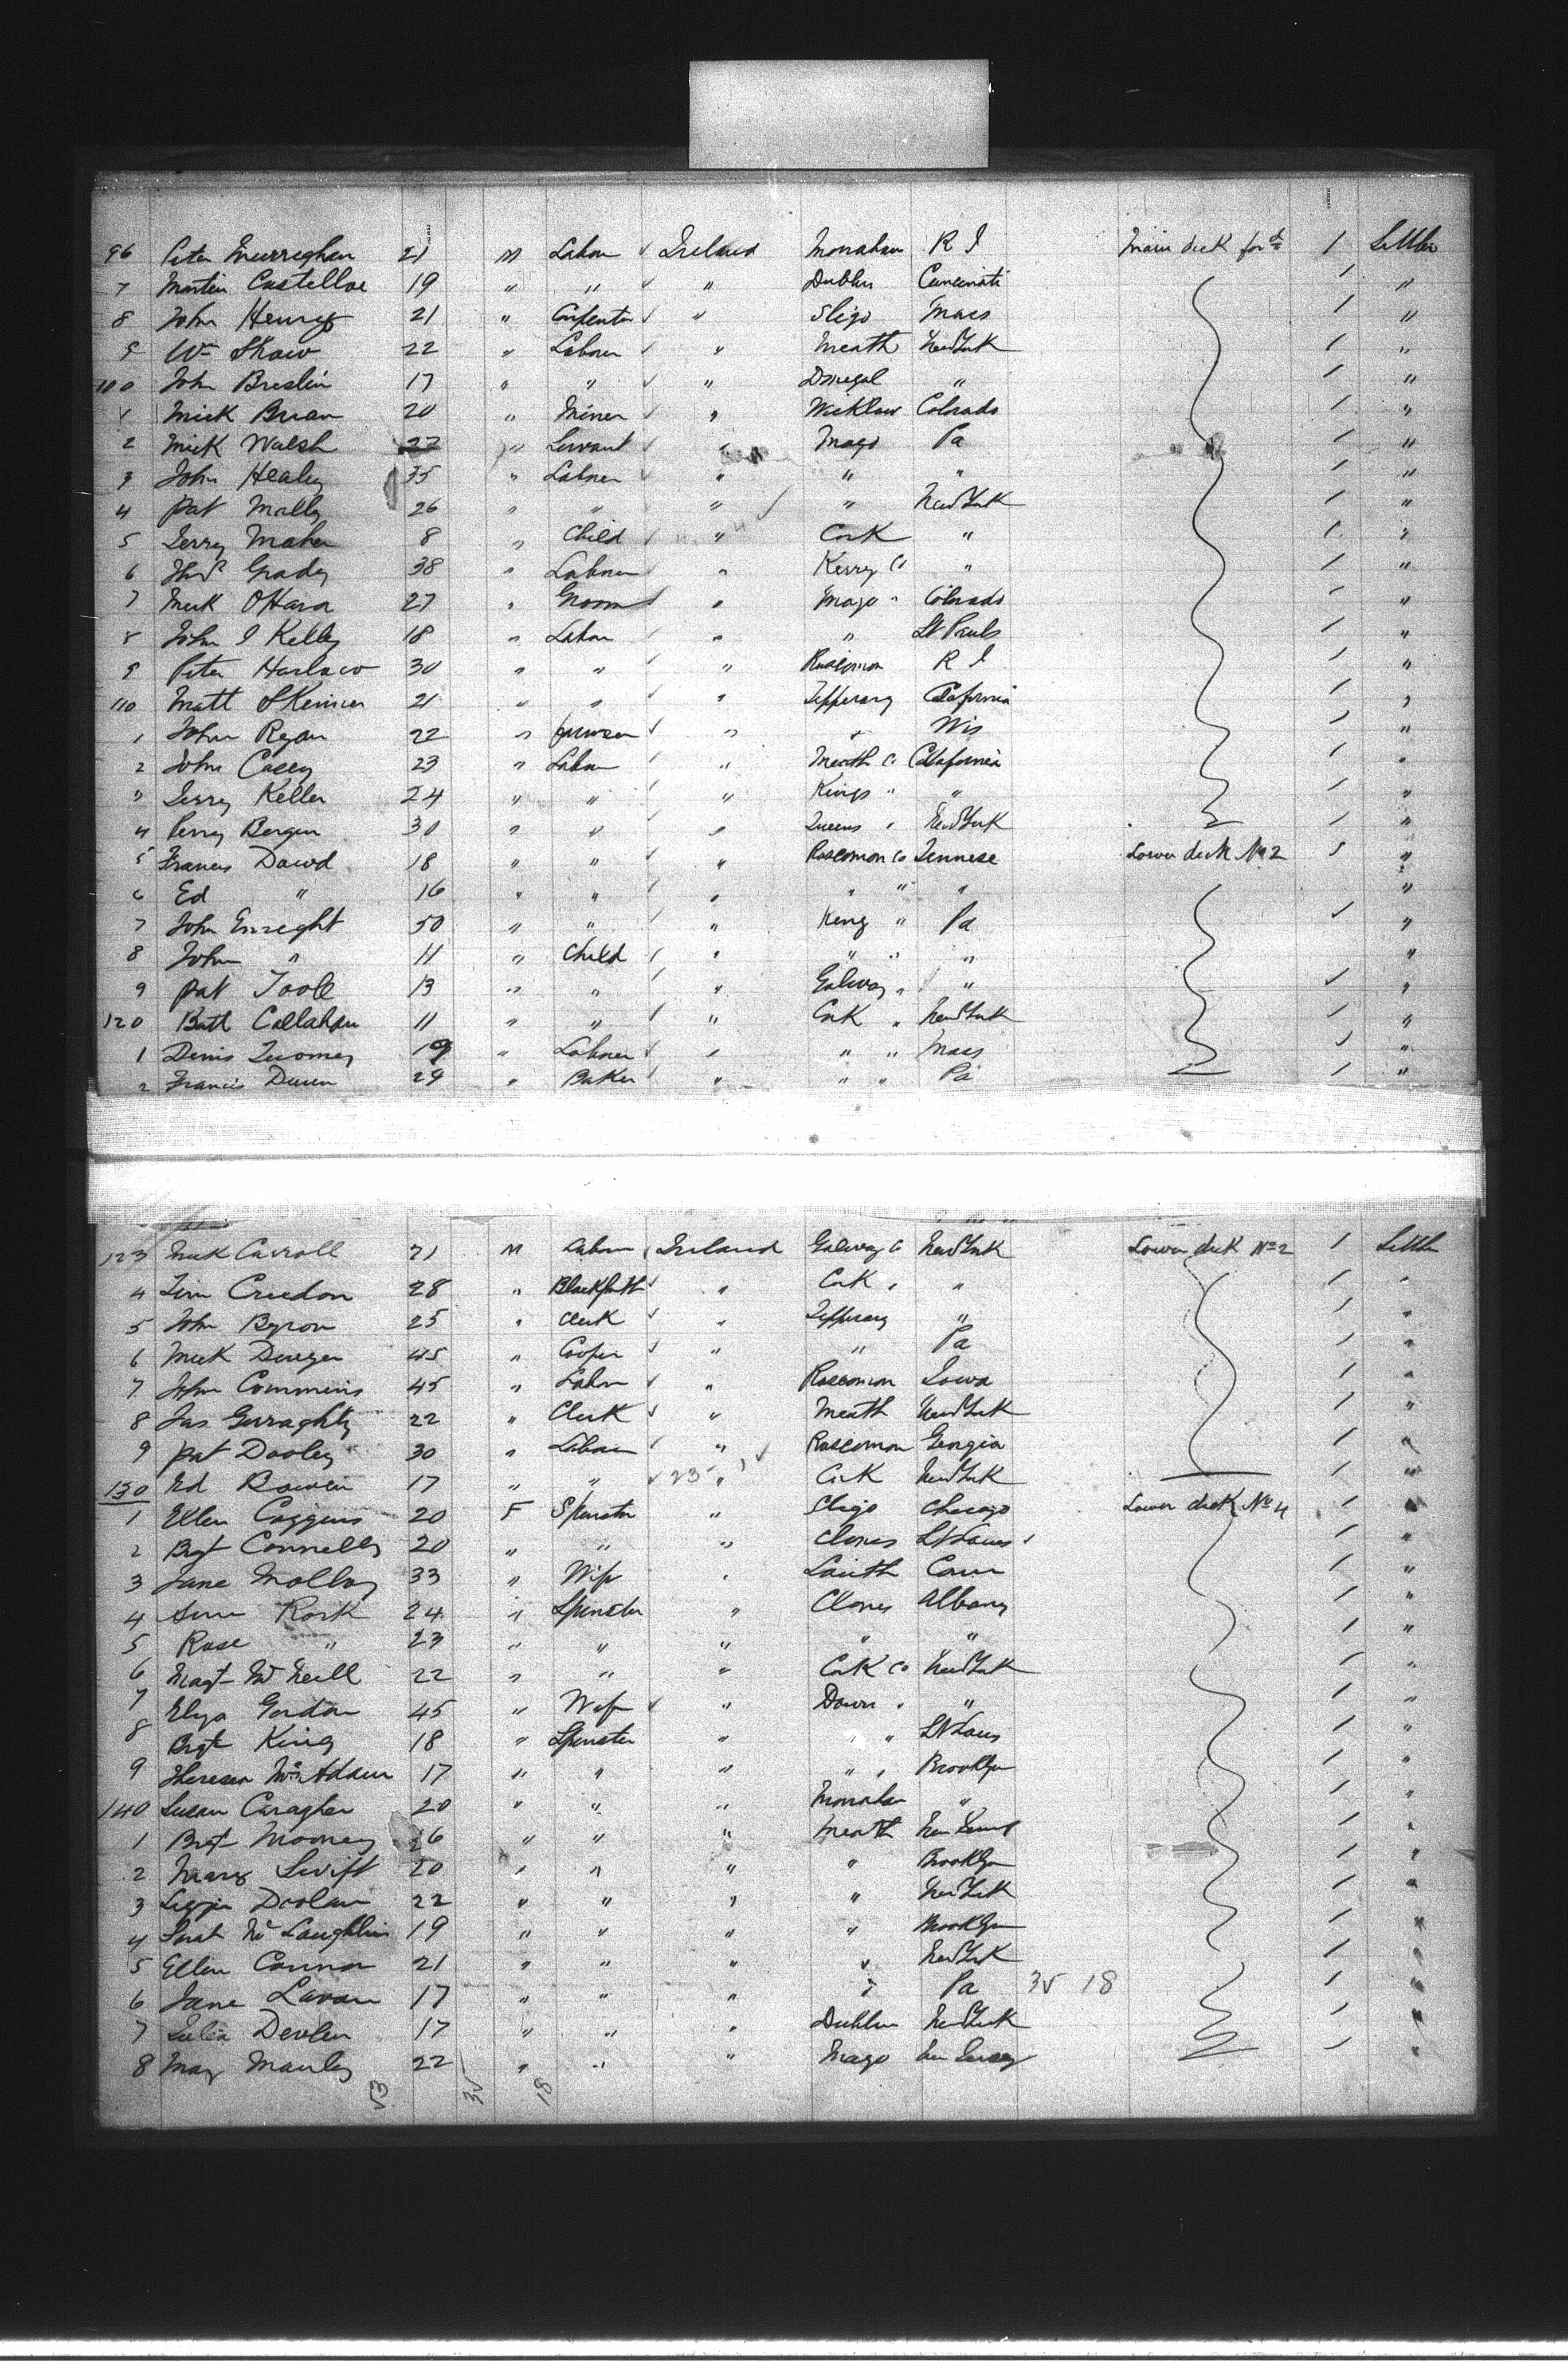 96 Peter Murreghan 21 M Labor Ireland Monahan R I Main deck ford 1 Settler
7 Martin Castelloe 19 " " " Dublin Cincinati / "
8 John Henry 21 " Carpenter " Sligo Mass / "
9 Wm Shaw 22 " Laborer " Meath New York / "
100 John Breslin 17 " " " Donegal " / "
1 Mick Brian 20 " Miner " Wicklow Colorado / "
2 Mick Walsh 22 " Servant " Mayo Pa / "
3 John Healey 35 " Laborer " " " / "
4 Pat Mally 26 " " " " New York / "
5 Jerry Maher 8 " Child " Cork " / "
6 Thos Grady 38 " Laborer " Kerry Co " / "
7 Mick OHara 27 " Groom " Mayo " Colorado / "
8 John J Kelly 18 " Labor " " St Pauls / "
9 Peter Harlow 30 " " " Roscomon R I / "
110 Matt Skinner 21 " " " Tipperary California / "
1 John Ryan 22 " " " Wis / "
2 John Casey 23 " Labor " Meath Co California / "
" Jerry Keller 24 " " " Kings " " / "
4 Perry Bergin 30 " " " Queens " New York / "
5 Francis Dowd 18 " " " Roscomon Co Tennese Lower deck No 2 / "
6 Ed " 16 " " " " " " "
7 John Enreght 50 " " " King " Pa / "
8 John " 11 " Child " " " " "
9 Pat Toole 13 " " " Galway " " / "
120 Batt Callahan 11 " " " Cork " New York / "
1 Denis Twomey 19 " Laborer " " " Mass / "
2 Francis Dunn 24 " Baker " " " Pa / "
123 Mick Carroll 21 M Labor Ireland Galway Co New York Lower deck No 2 1 Settler
4 Tim Creedon 28 " Blacksmith " Cork " " / "
5 John Byron 25 " Clerk " Tipperary " / "
6 Mick Dwyer 45 " Cooper " " Pa / "
7 John Commins 45 " Labor " Roscomon Iowa / "
8 Jas Gerraghty 22 " Clerk " Meath New York / "
9 Pat Dooley 30 " Laborer " Roscomon Georgia / "
130 Ed Bowen 17 " " 23 " Cork New York / "
1 Ellen Coggins 20 F Spinster " Sligo Chicago Lower deck No 4 / "
2 Bigt Connelly 20 " " " Clones St Louis / "
3 Jane Molloy 33 " Wife " Louth Conn / "
4 Ann Rork 24 " Spinster " Clones Albany / "
5 Rose " 23 " " " " " / "
6 Magt McNeill 22 " " " Cork Co New York / "
7 Eliza Gordon 45 " Wife " Down " " / "
8 Bigt King 18 " Spinster " " " St Louis / "
9 Theresa McAdam 17 " " " " " Brooklyn / "
140 Susan Caragher 20 " " " Monahan " / "
1 Bigt Mooney 26 " " " Meath New Jersey / "
2 Mary Swift 20 " " " " Brooklyn / "
3 Lizzie Dolan 22 " " " " New York / "
4 Sarah McLaughlin 19 " " " " Brooklyn / "
5 Ellen Connor 21 " " " " New York / "
6 Jane Lavan 17 " " " " Pa 35 18 / "
7 Julia Devlin 17 " " " Dublin New York / "
8 May Manley 22 " " " Mayo New Jersey / "
53 35 18